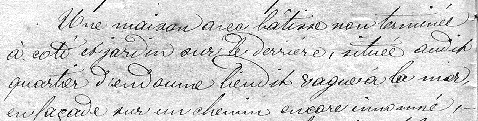 Une maison avec bâtisse non terminée
à coté et jardin sur le derrière, située audit
quartier d'endoume lieudit vaguer la mer,
en façade sur un chemin encore innomé,